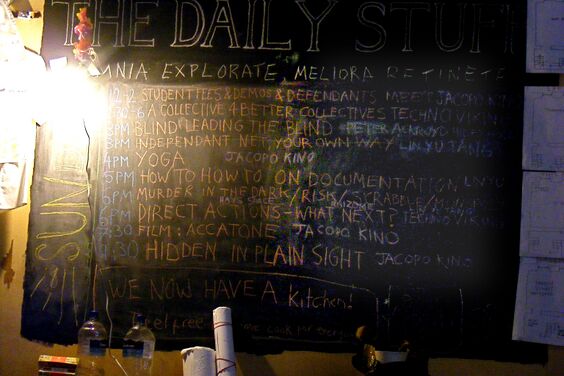 THE DAILY STUFF
OMNIA EXPLORATE, MELIORA RETINETE
12-2 STUDENT FEES & DEMOS & DEFENDANTS MEET JACOPO KINO
A COLLECTIVE 4 BETTER COLLECTIVES TECHNOVIKING
3PM BLIND LEADING THE BLIND PETER
3PM INDEPENDANT NET, YOUR OWN WAY LIN YU
4PM YOGA JACOPO KINO
5PM HOW TO HOW TO ON DOCUMENTATION LIN YU
6PM MURDER IN THE DARK / RISK / SCRABBLE /
6PM DIRECT ACTIONS - WHAT NEXT? TECHNOVIKING
7.30 FILM: ACCATONE JACOPO KINO
9.30 HIDDEN IN PLAIN SIGHT JACOPO KINO
SUN
WE NOW HAVE A kitchen!
feel free